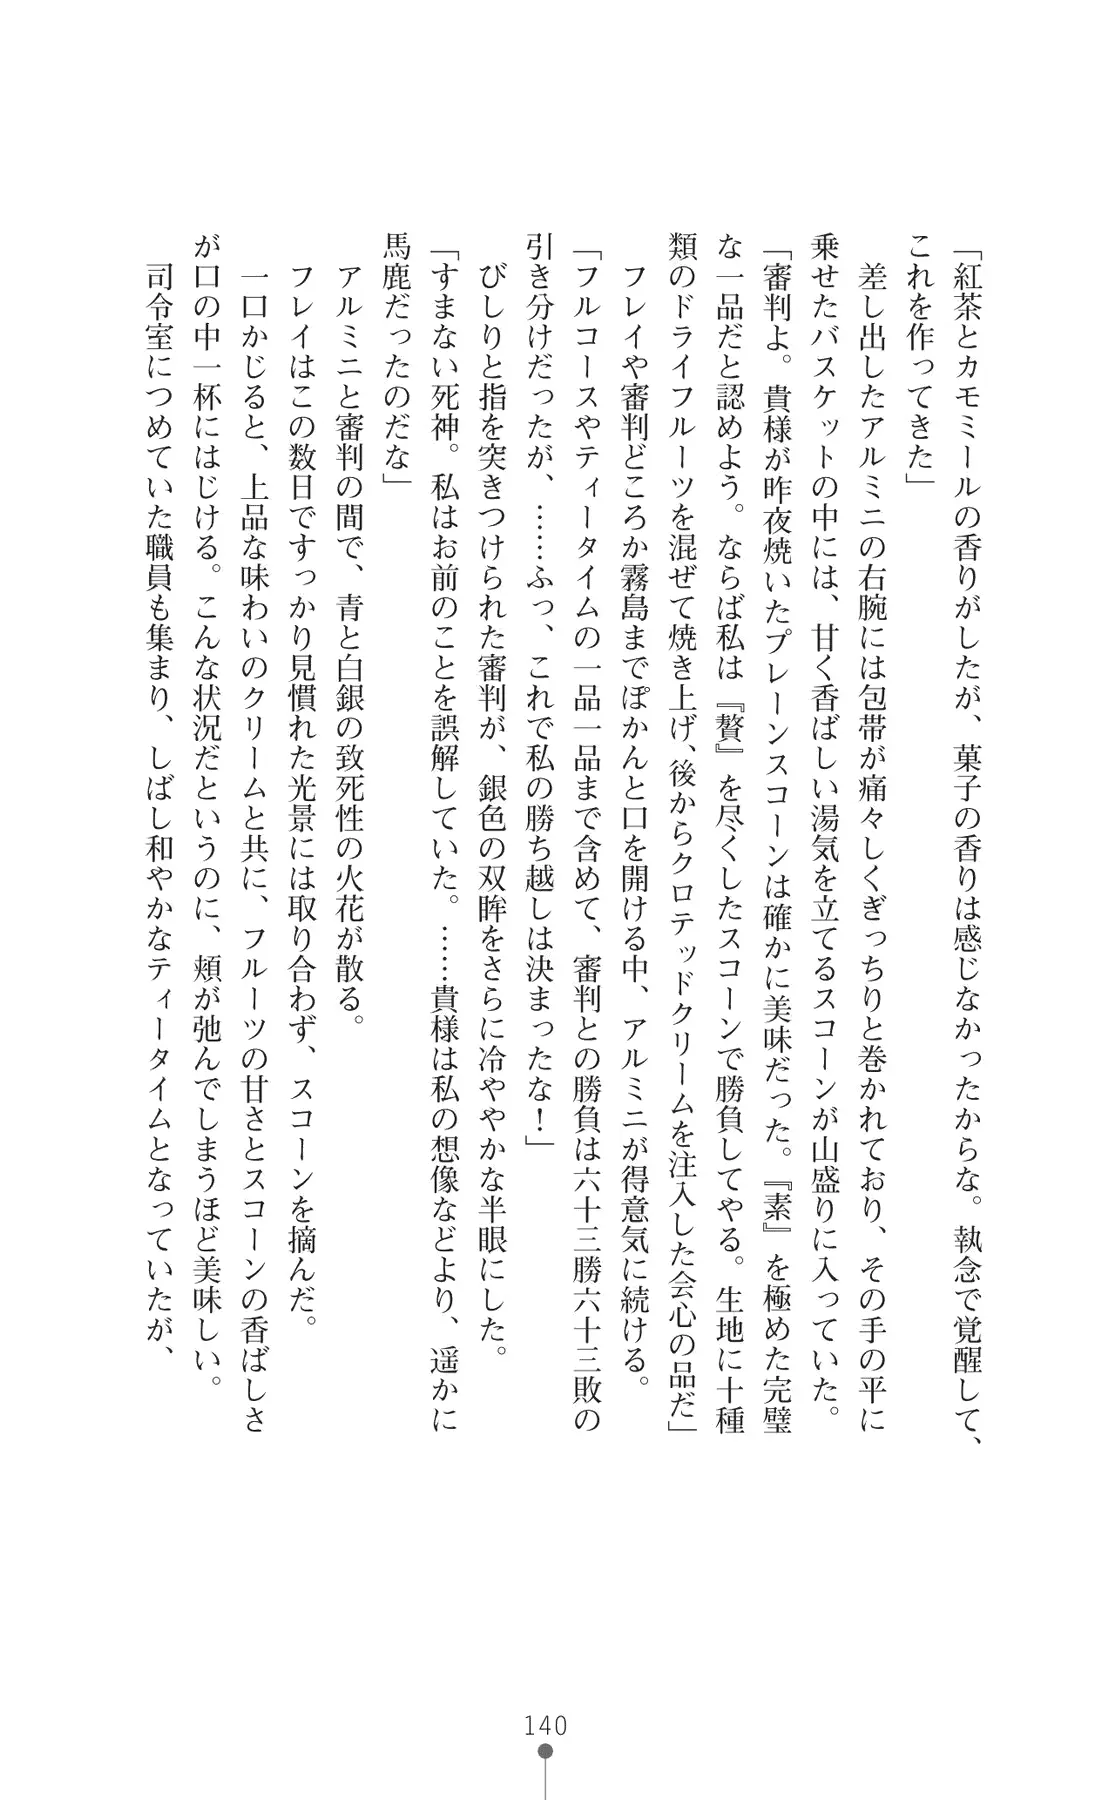 「紅茶とカモミールの香りがしたが、菓子の香りは感じなかったからな。執念で覚醒して、
これを作ってきた」
　差し出したアルミニの右腕には包帯が痛々しくぎっちりと巻かれており、その手の平に
乗せたバスケットの中には、甘く香ばしい湯気を立てるスコーンが山盛りに入っていた。
「審判よ。貴様が昨夜焼いたプレーンスコーンは確かに美味だった。『素』を極めた完璧
な一品だと認めよう。ならば私は『贅』を尽くしたスコーンで勝負してやる。生地に十種
類のドライフルーツを混ぜて焼き上げ、後からクロテッドクリームを注入した会心の品だ」
　フレイや審判どころか霧島までぽかんと口を開ける中、アルミニが得意気に続ける。
「フルコースやティータイムの一品一品まで含めて、審判との勝負は六十三勝六十三敗の
引き分けだったが、……ふっ、これで私の勝ち越しは決まったな！」
　びしりと指を突きつけられた審判が、銀色の双眸をさらに冷ややかな半眼にした。
「すまない死神。私はお前のことを誤解していた。……貴様は私の想像などより、遥かに
馬鹿だったのだな」
　アルミニと審判の間で、青と白銀の致死性の火花が散る。
　フレイはこの数日ですっかり見慣れた光景には取り合わず、スコーンを摘んだ。
　一口かじると、上品な味わいのクリームと共に、フルーツの甘さとスコーンの香ばしさ
が口の中一杯にはじける。こんな状況だというのに、頬が弛んでしまうほど美味しい。
　司令室につめていた職員も集まり、しばし和やかなティータイムとなっていたが、
140